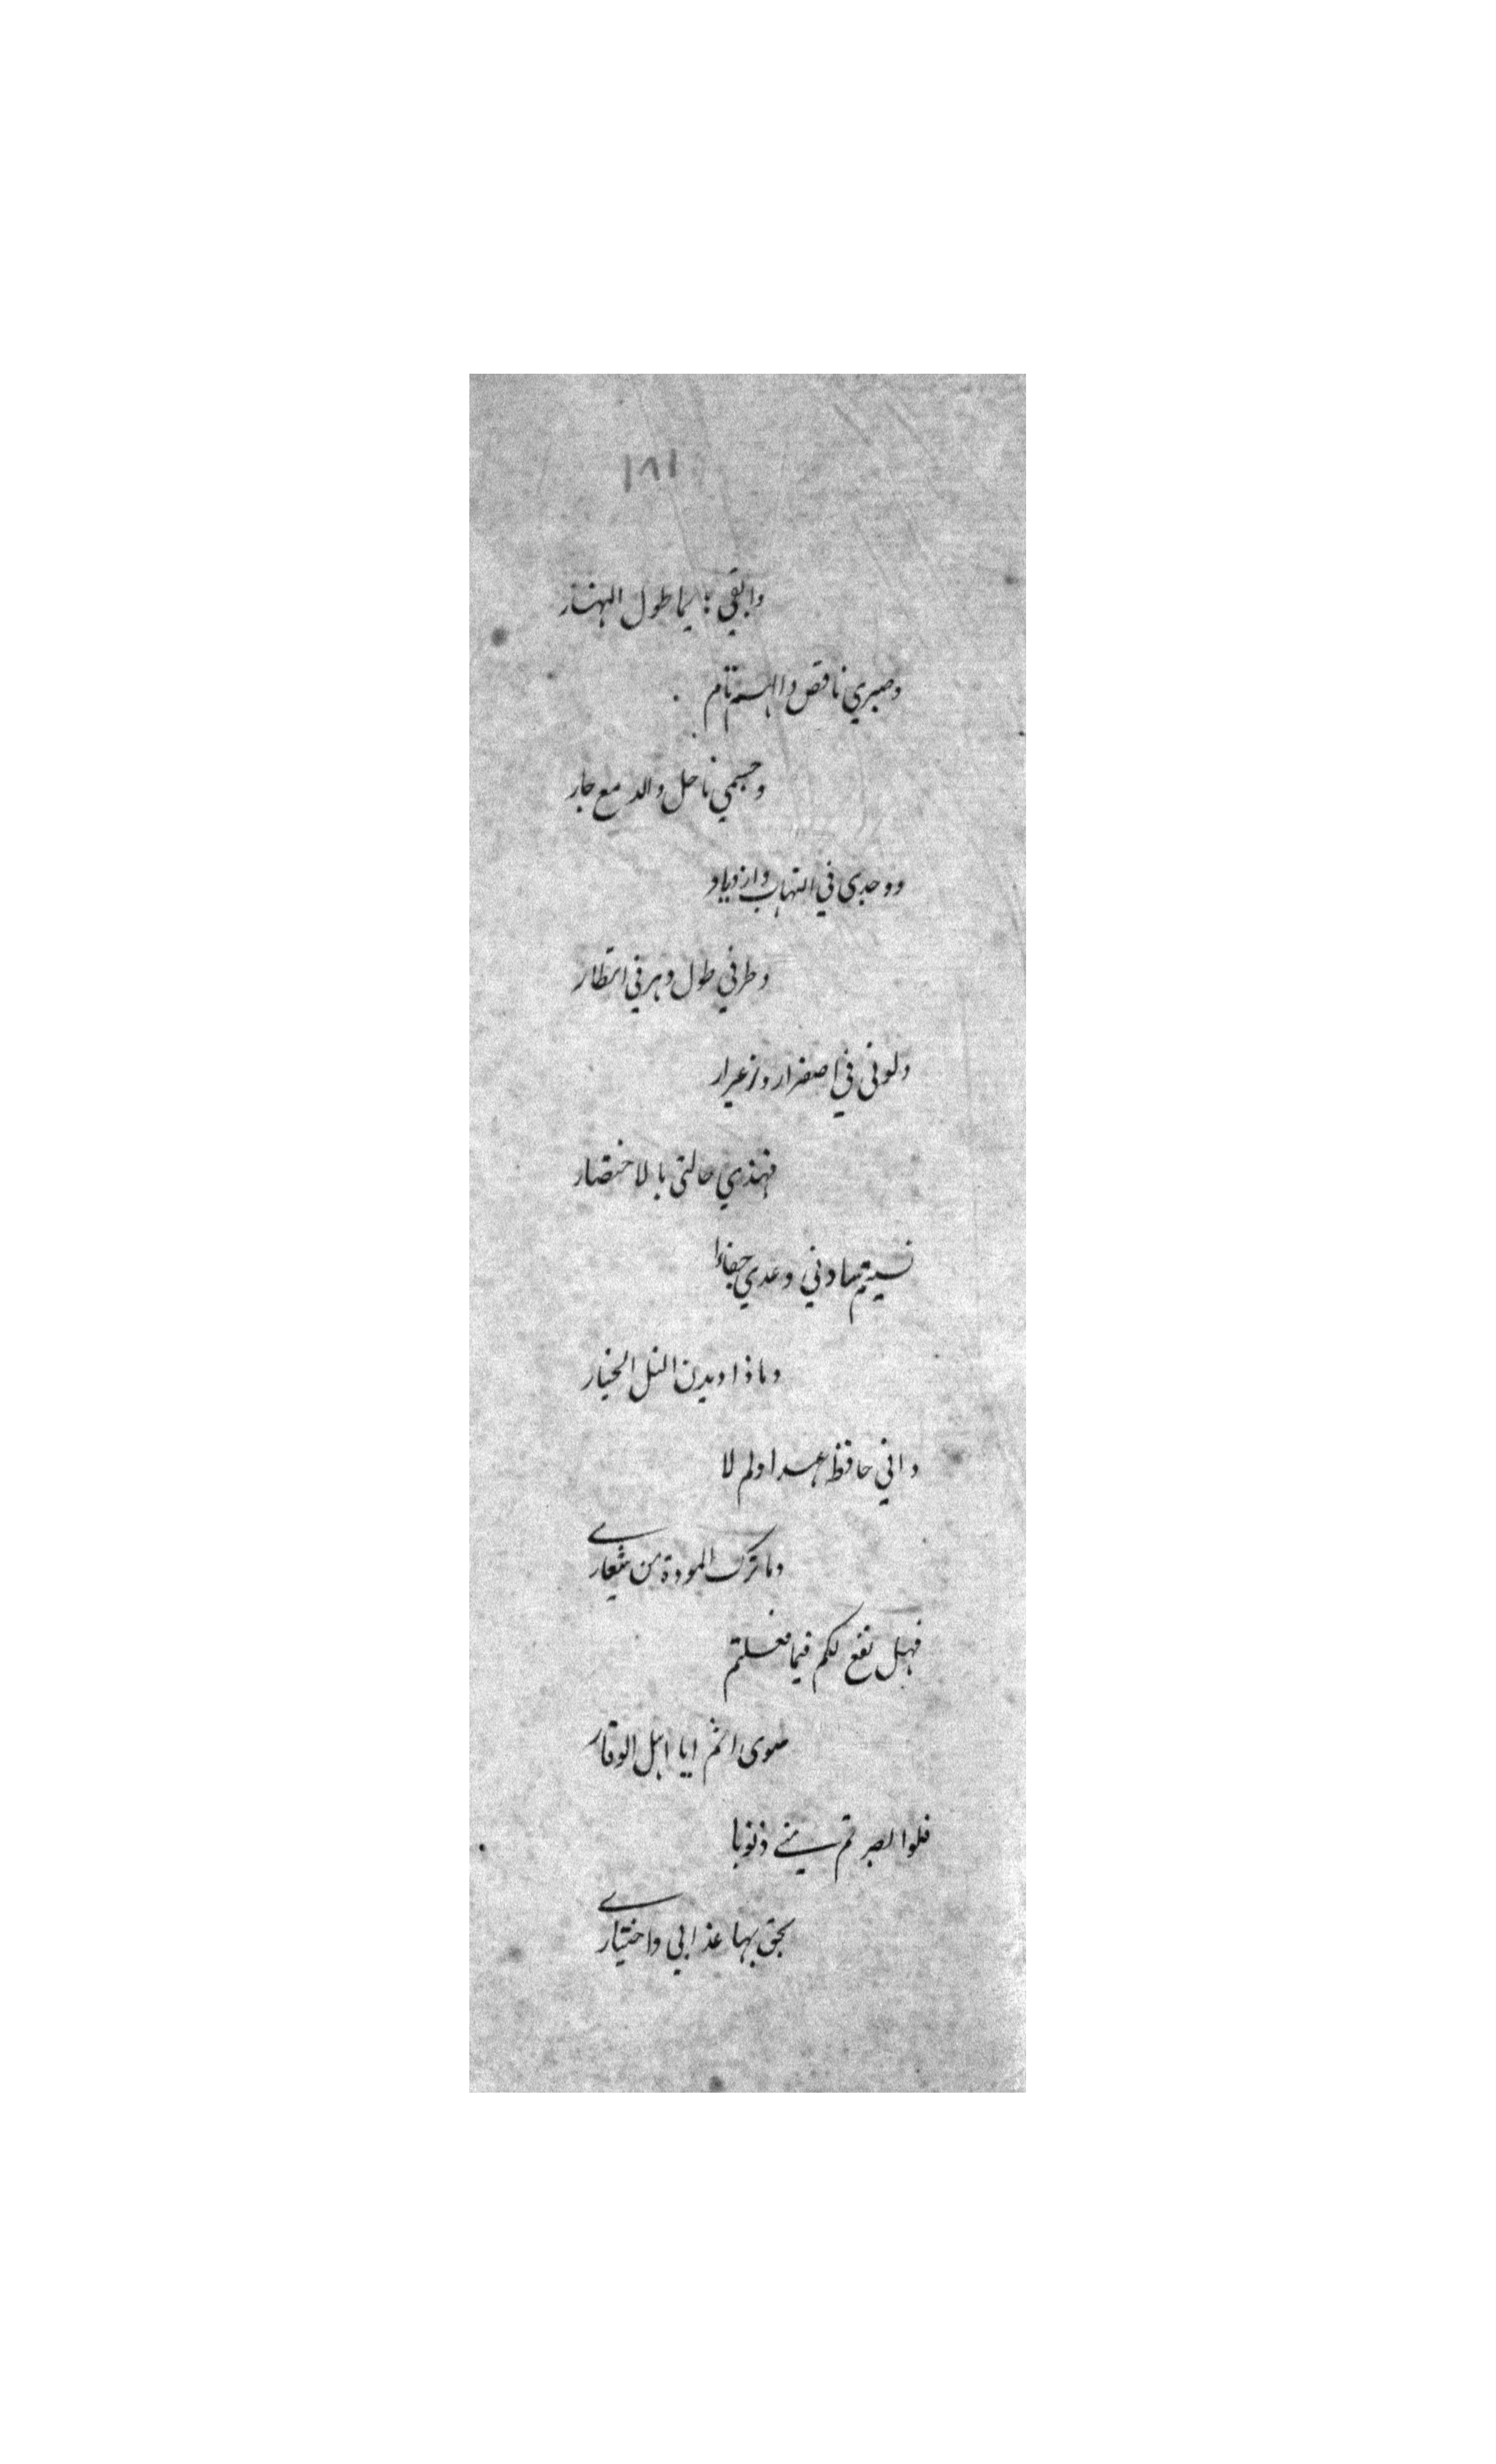 ١٨١
وابقي باكيا طول النهار
وصبري ناقص والهم تام
وجسمي ناحل والدمع جار
ووجدى في التهاب وازدياد
وطرفي طول دهر في انتظار
ولوني في اصفرار وازعيرار
فهذي حالتي بالاختصار
نسيتم وعدي جفاءا
وماذا ديدن الخل الخيار
واني حافظ عهدا ولم لا
وما ترك المودة من شعاري
فهل نفع لكم فيما فعلتم
سوى اثم ايا اهل الوقار
فلو ابصرتم مني ذنوبا
بحق بها عذابي واختياري